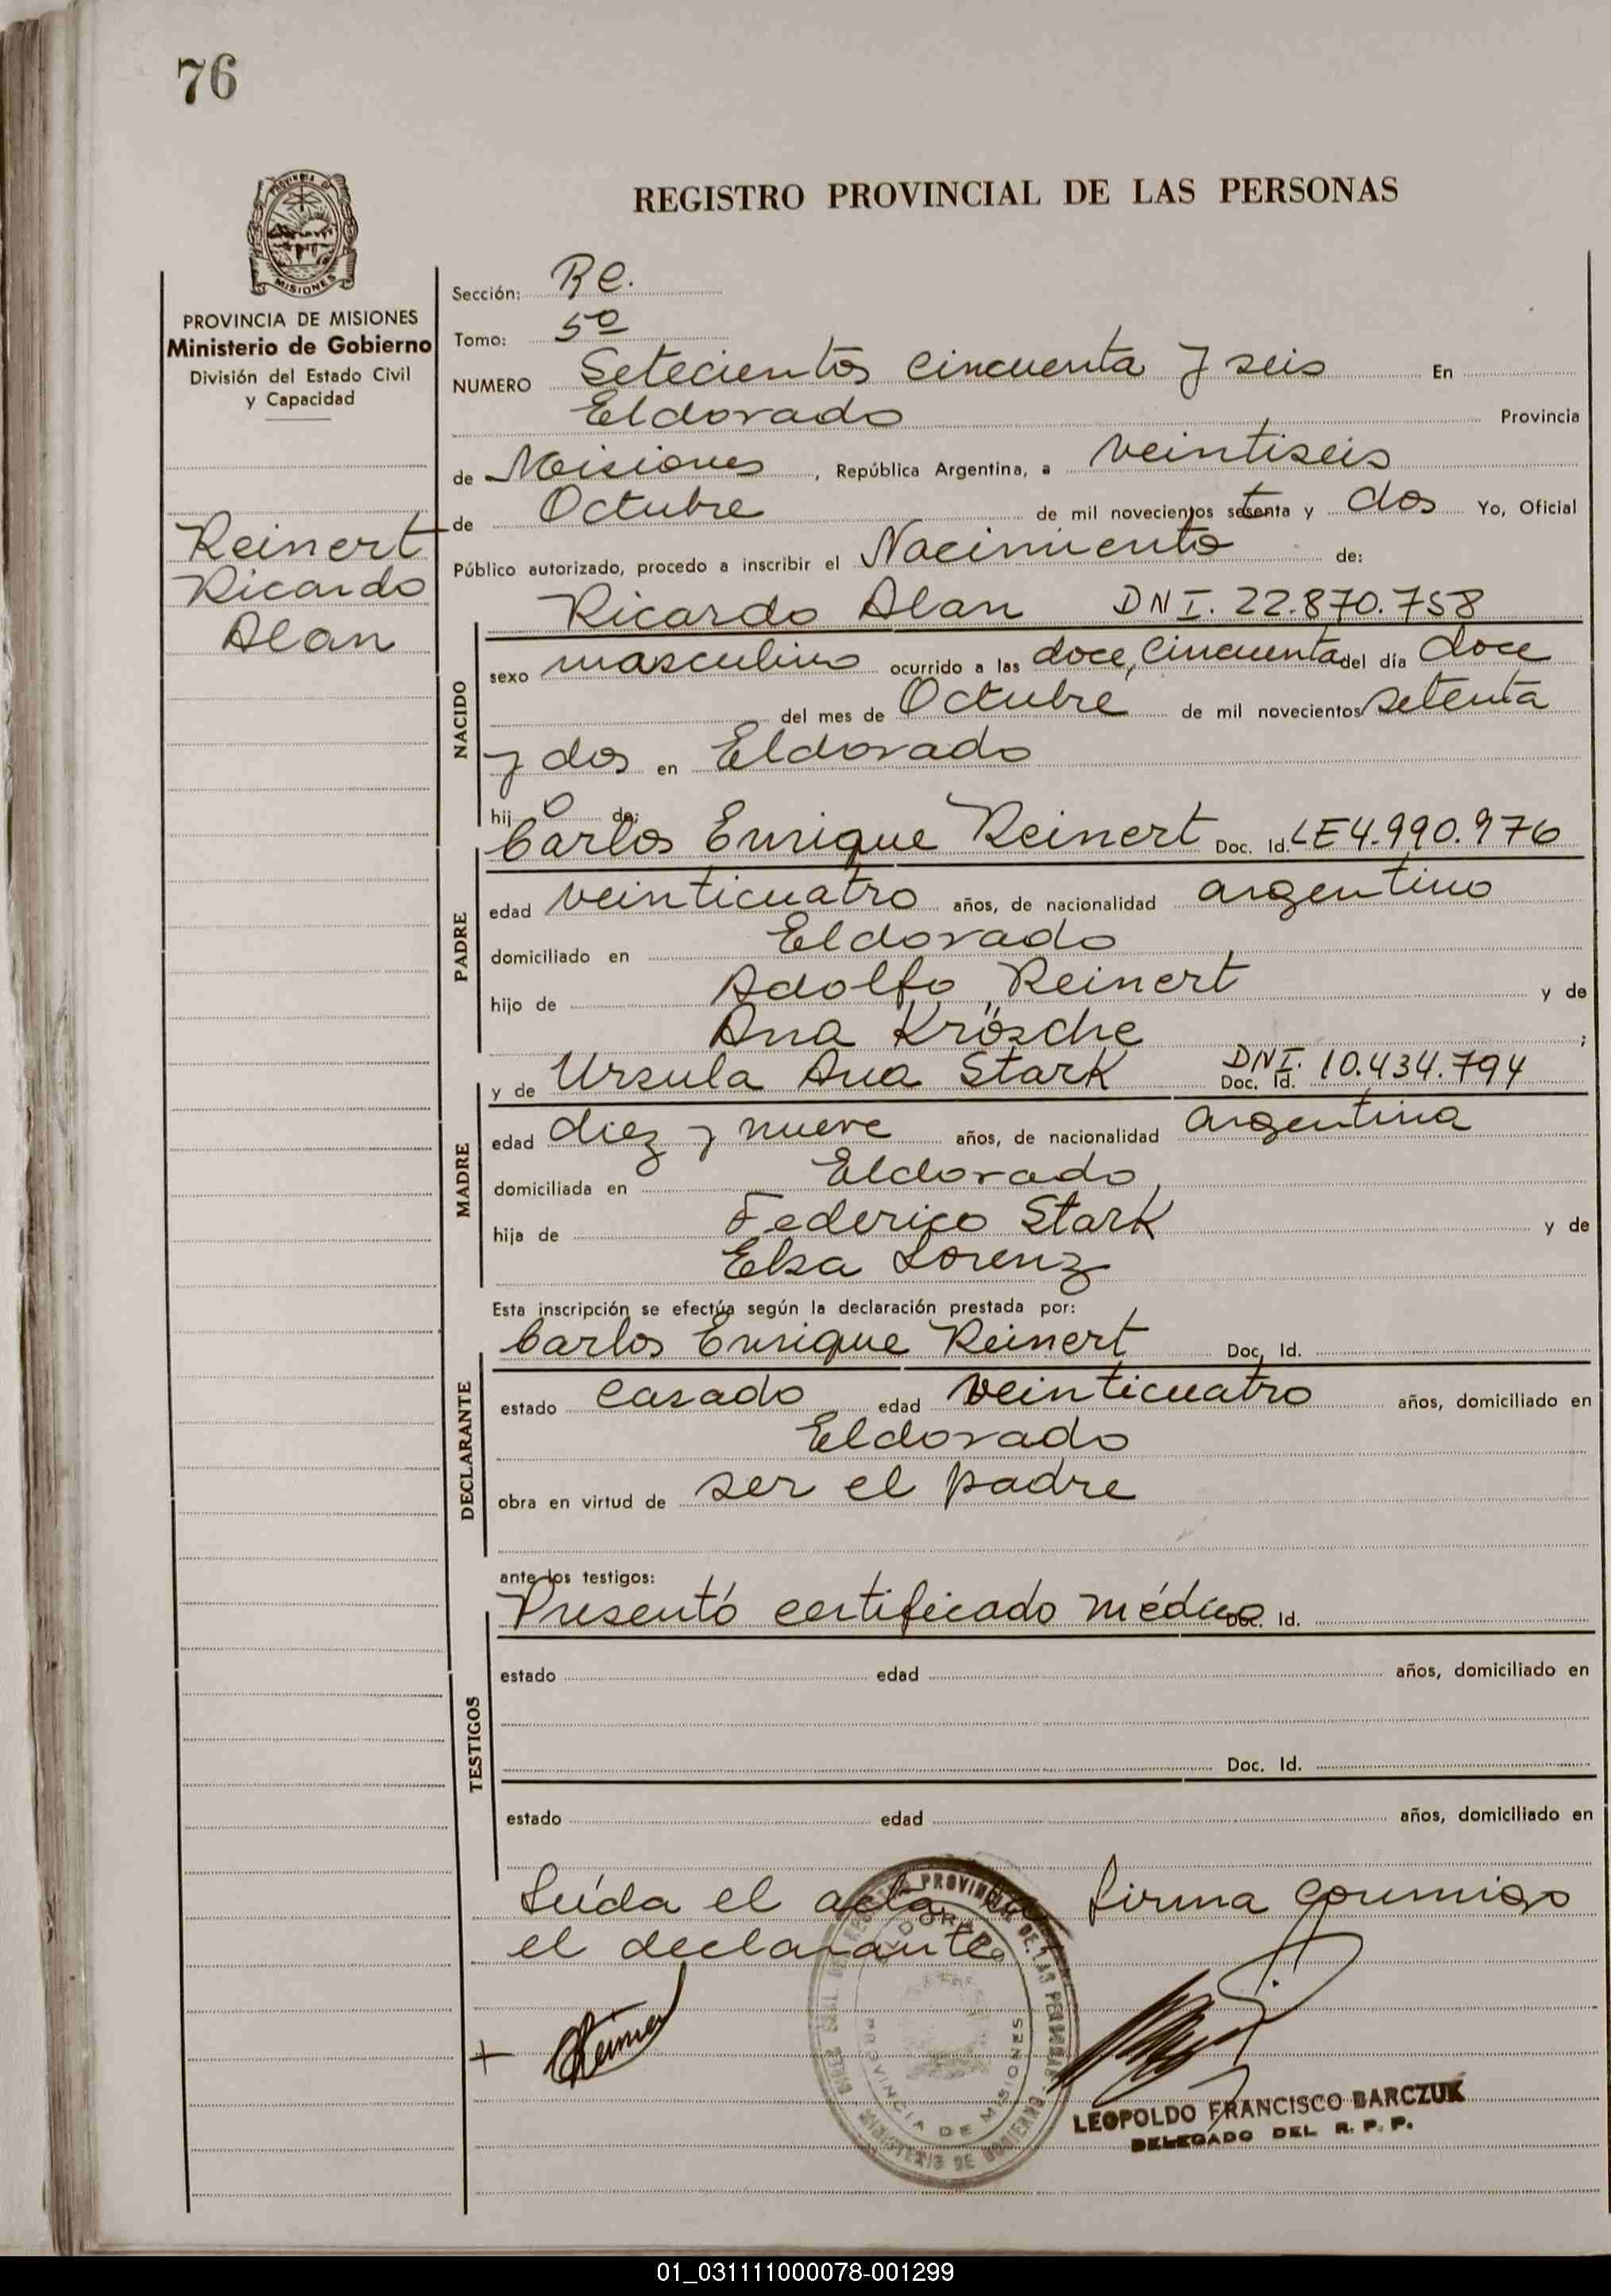 76
REGISTRO PROVINCIAL DE LAS PERSONAS
PROVINCIA DE MISIONES
Ministerio de Gobierno
División del Estado Civil
y Capacidad
Reinert
Ricardo
Alan
Sección: Re.
Tomo: 5º
NUMERO Setecientos cincuenta y seis En
Eldorado Provincia
de Misiones, República Argentina, a veintiseis
de Octubre de mil novecientos setenta y dos Yo, Oficial
Público autorizado, procedo a inscribir el Nacimiento de:
Ricardo Alan DNI. 22.870.758
NACIDO
sexo masculino ocurrido a las doce, cincuenta del día doce
del mes de Octubre de mil novecientos setenta
y dos en Eldorado
hijo de:
Carlos Enrique Reinert Doc. Id. LE 4.990.976
PADRE
edad veinticuatro años, de nacionalidad argentino
domiciliado en Eldorado
hijo de Adolfo Reinert y de
Ana Krösche ;
y de Ursula Ana Stark Doc. Id. DNI. 10.434.794
MADRE
edad diez y nueve años, de nacionalidad argentina
domiciliada en Eldorado
hija de Federico Stark y de
Elsa Lorenz
Esta inscripción se efectúa según la declaración prestada por:
Carlos Enrique Reinert Doc. Id.
DECLARANTE
estado casado edad veinticuatro años, domiciliado en
Eldorado
obra en virtud de ser el padre
ante los testigos:
Presentó certificado médico Doc. Id.
TESTIGOS
estado edad años, domiciliado en
Doc. Id.
estado edad años, domiciliado en
Leída el acta la firma conmigo
el declarante
LEOPOLDO FRANCISCO BARCZUK
DELEGADO DEL R. P. P.
PROVINCIA DE MISIONES
01_031111000078-001299